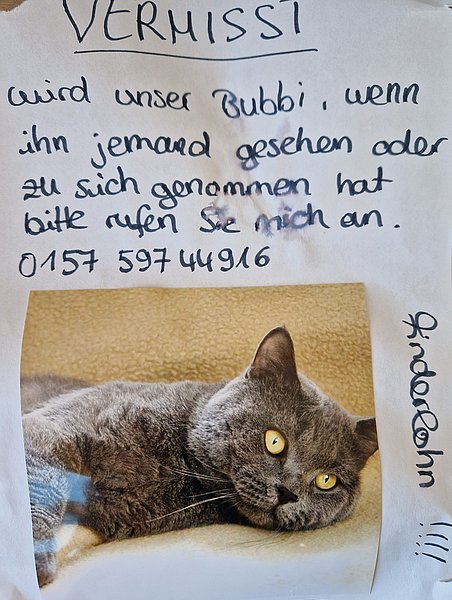 VERMISST
wird unser Bubbi, wenn
ihn jemand gesehen oder
zu sich genommen hat
bitte rufen Sie mich an.
0157 59744916
Finderlohn !!!!